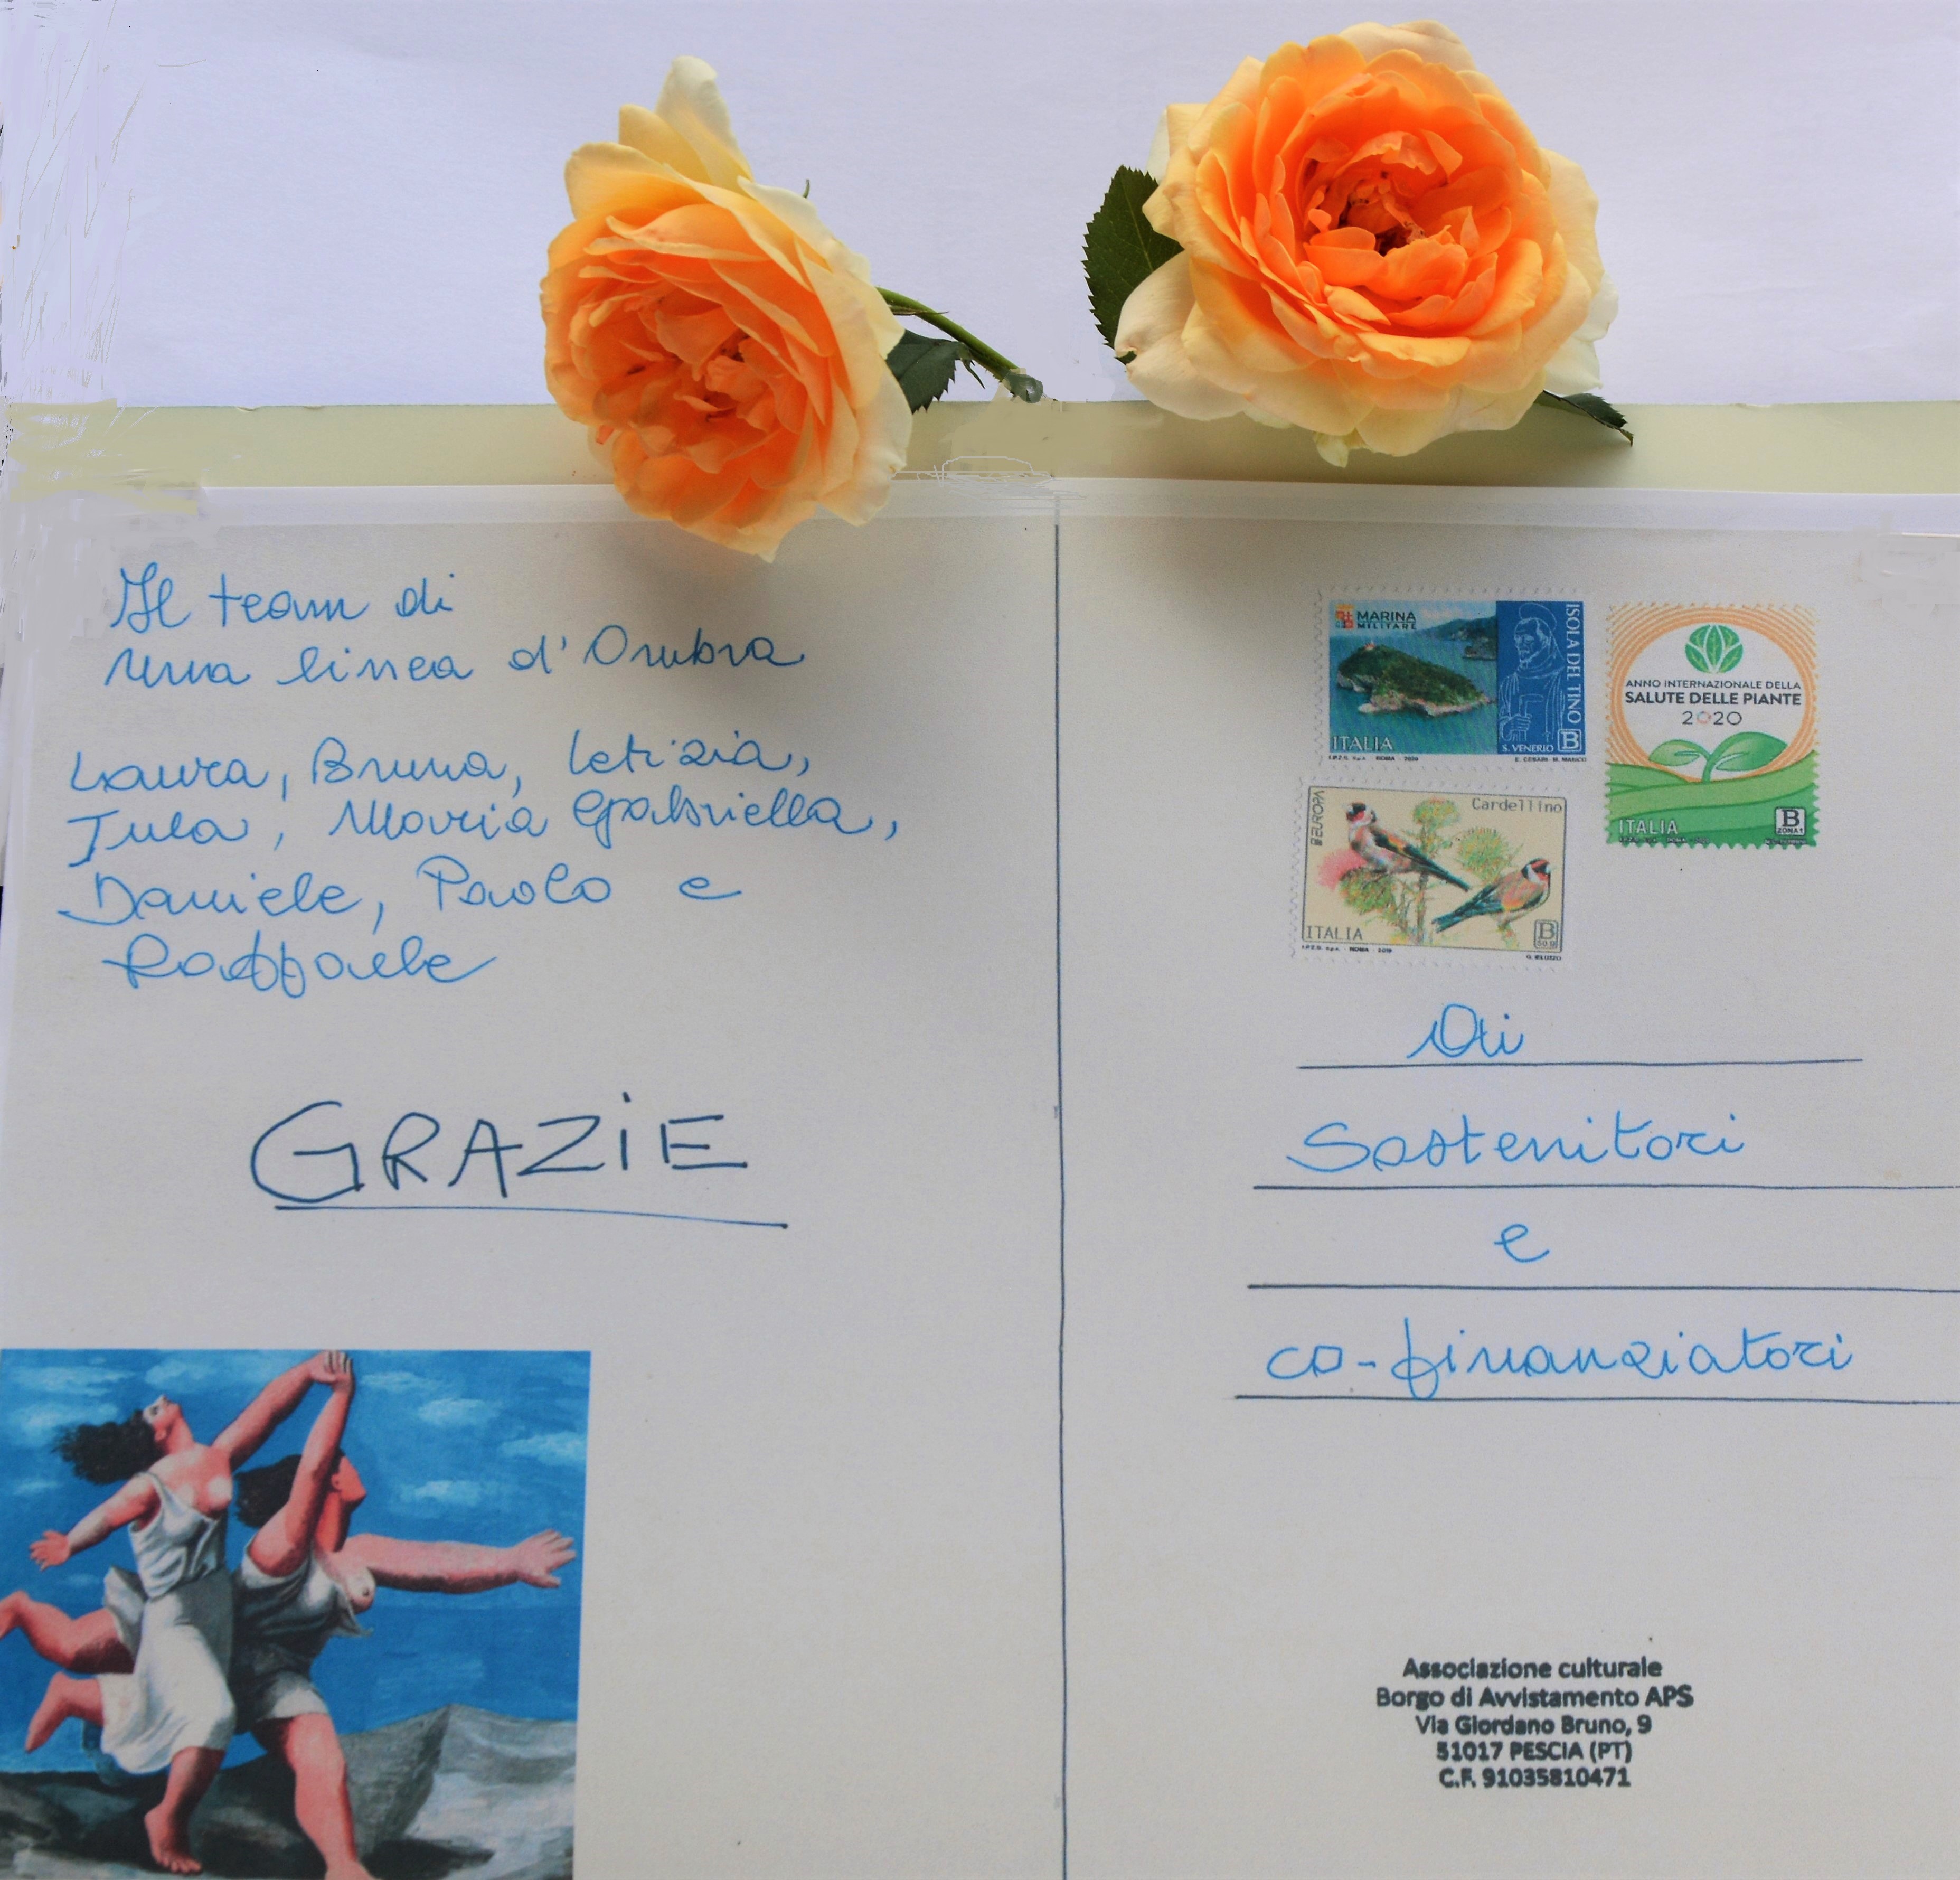 Il team di
una linea d'Ombra
Laura, Bruna, Letizia,
Tula, Maria Gabriella,
Daniele, Paolo e
Raffaele
GRAZiE
MARINA
MILITARE
ISOLA DEL TINO
ITALIA
S. VENERIO B
I.P.Z.S. S.p.A. - ROMA - 2020
ANNO INTERNAZIONALE DELLA
SALUTE DELLE PIANTE
2020
ITALIA
B
ZONA 1
EUROPA
Cardellino
ITALIA
B
50 g
I.P.Z.S. S.p.A. - ROMA - 2019
Ai
Sostenitori
e
co-finanziatori
Associazione culturale
Borgo di Avvistamento APS
Via Giordano Bruno, 9
51017 PESCIA (PT)
C.F. 91035810471